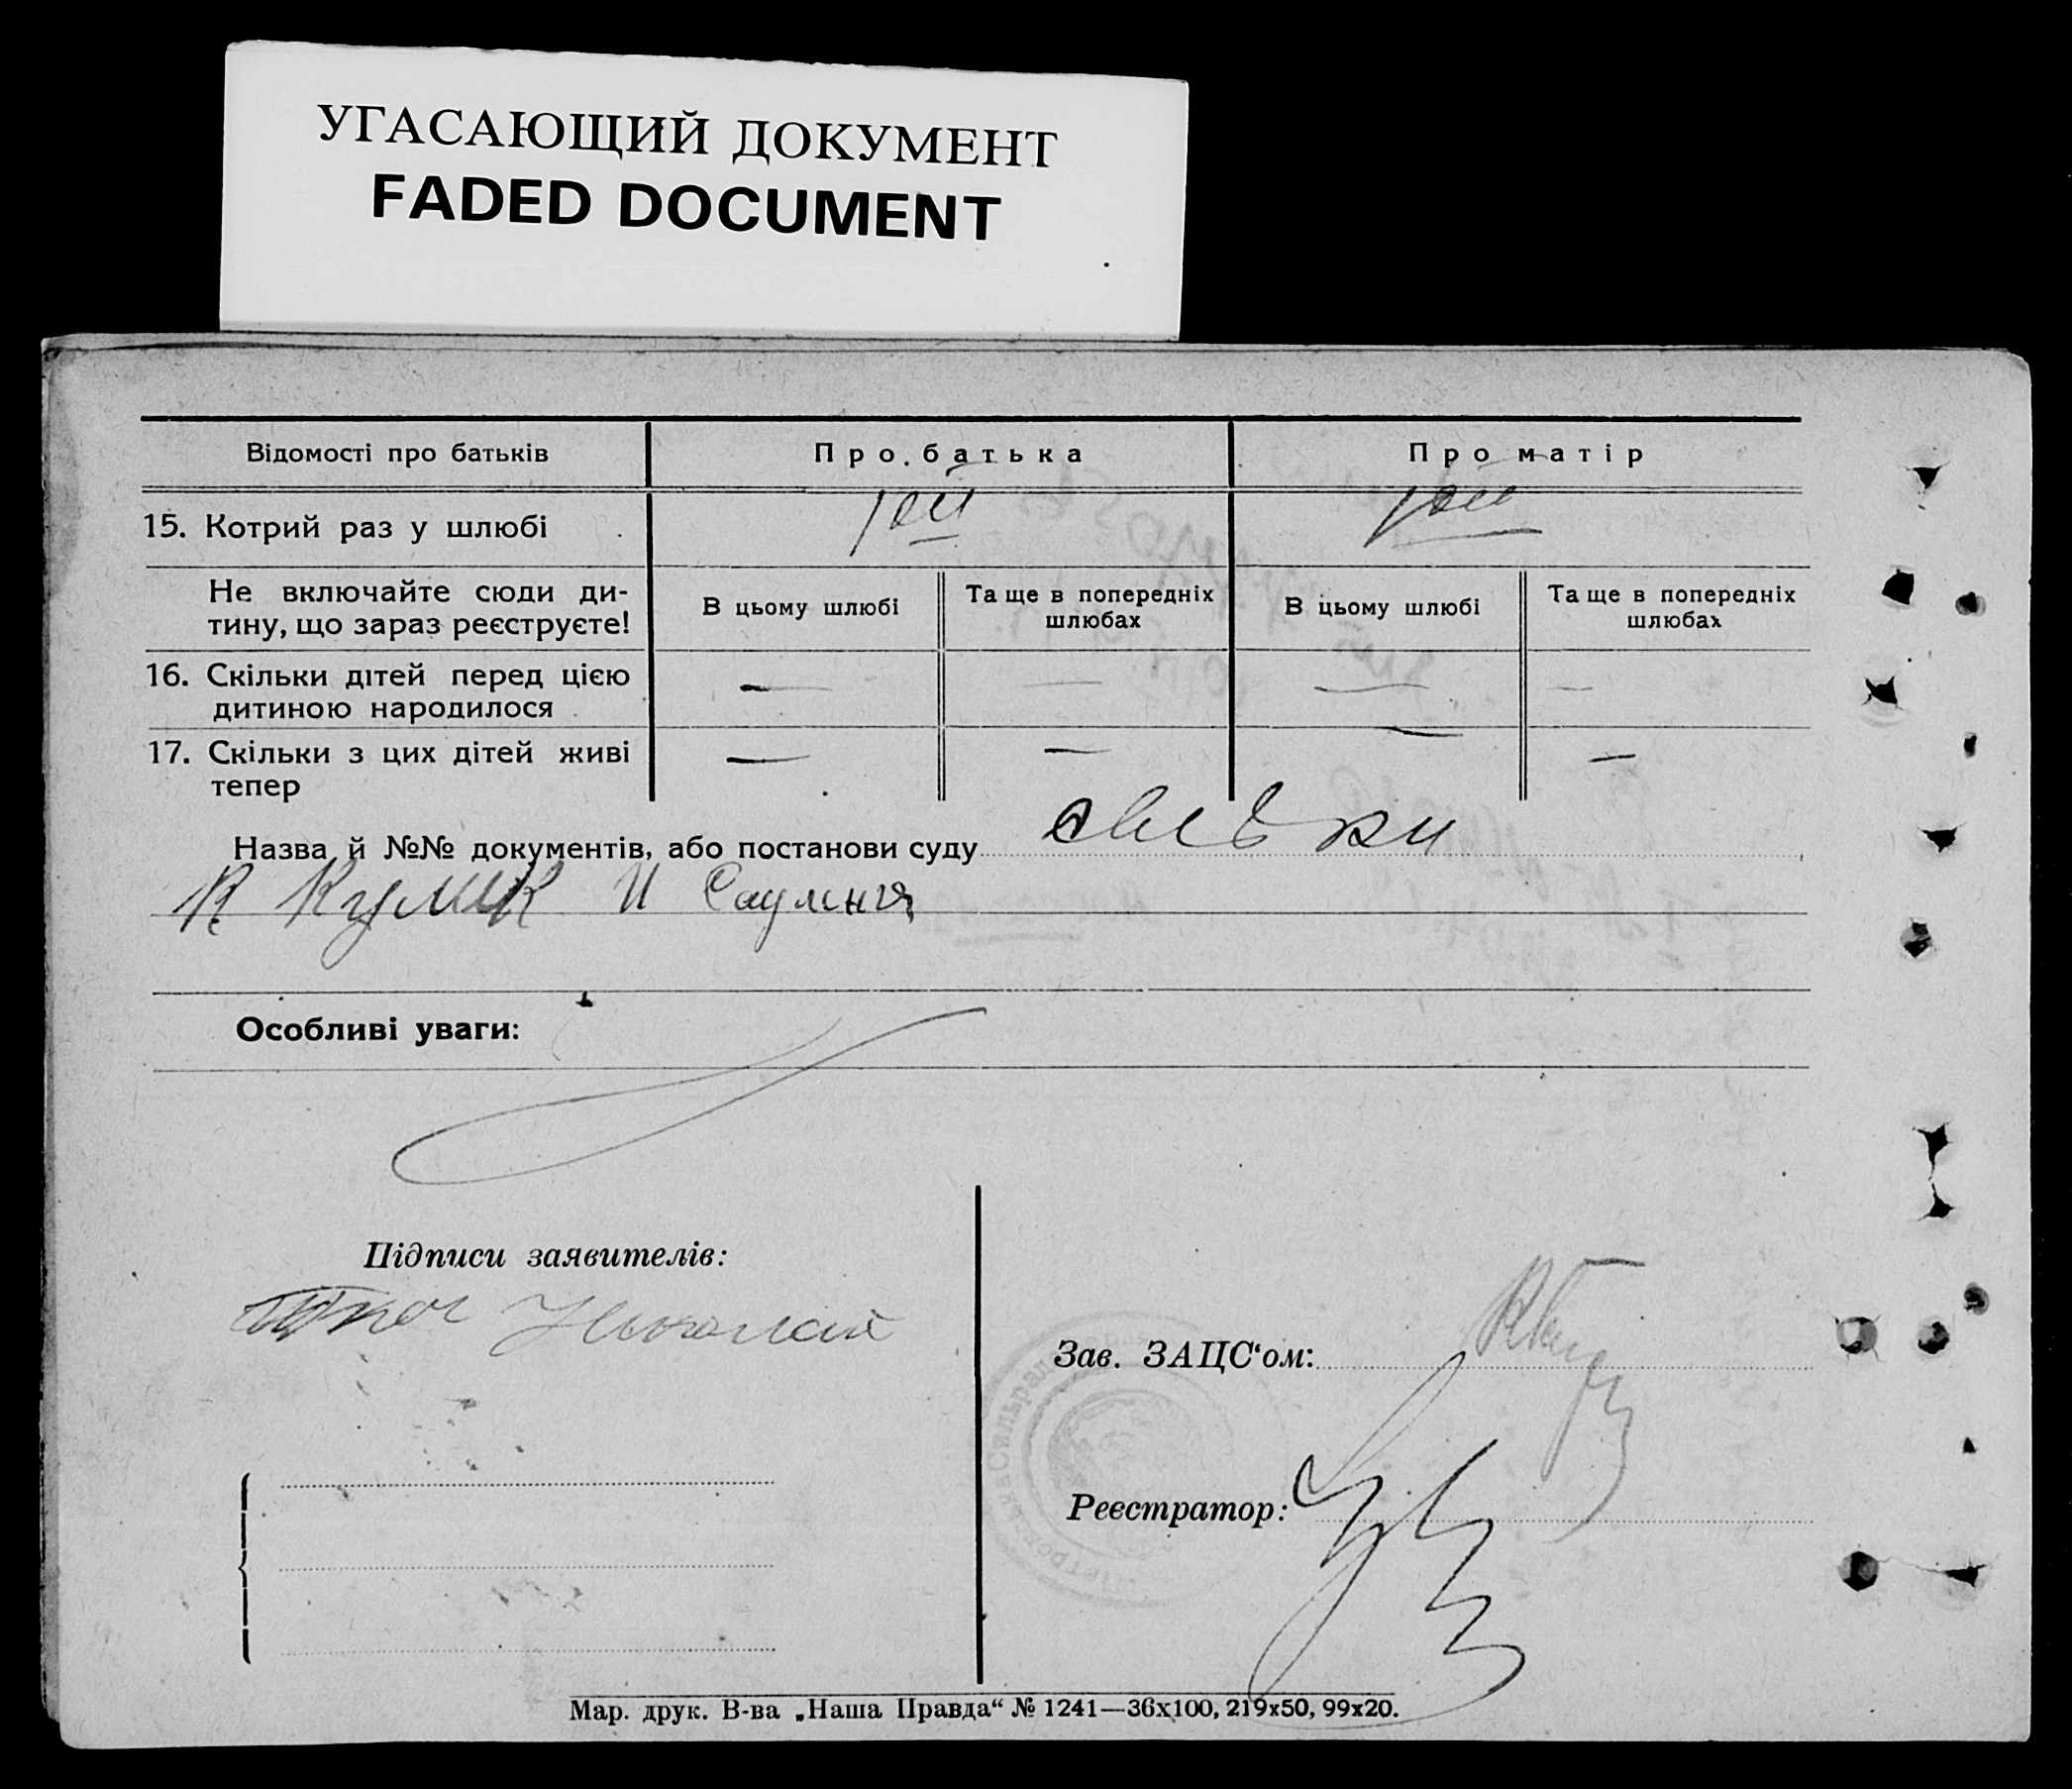 УГАСАЮЩИЙ ДОКУМЕНТ
FADED DOCUMENT
Відомості про батьків
Про батька
Про матір
15. Котрий раз у шлюбі
Не включайте сюди ди-
тину, що зараз реєструєте!
В цьому шлюбі
Та ще в попередніх
шлюбах
В цьому шлюбі
Та ще в попередніх
шлюбах
16. Скільки дітей перед цією
дитиною народилося
— — — —
17. Скільки з цих дітей живі
тепер
— — — —
Назва й №№ документів, або постанови суду
К Кулик И
Особливі уваги:
Підписи заявителів:
Николай
Зав. ЗАЦС‘ом:
Реєстратор:
Мар. друк. В-ва „Наша Правда“ № 1241—36х100, 219х50, 99х20.